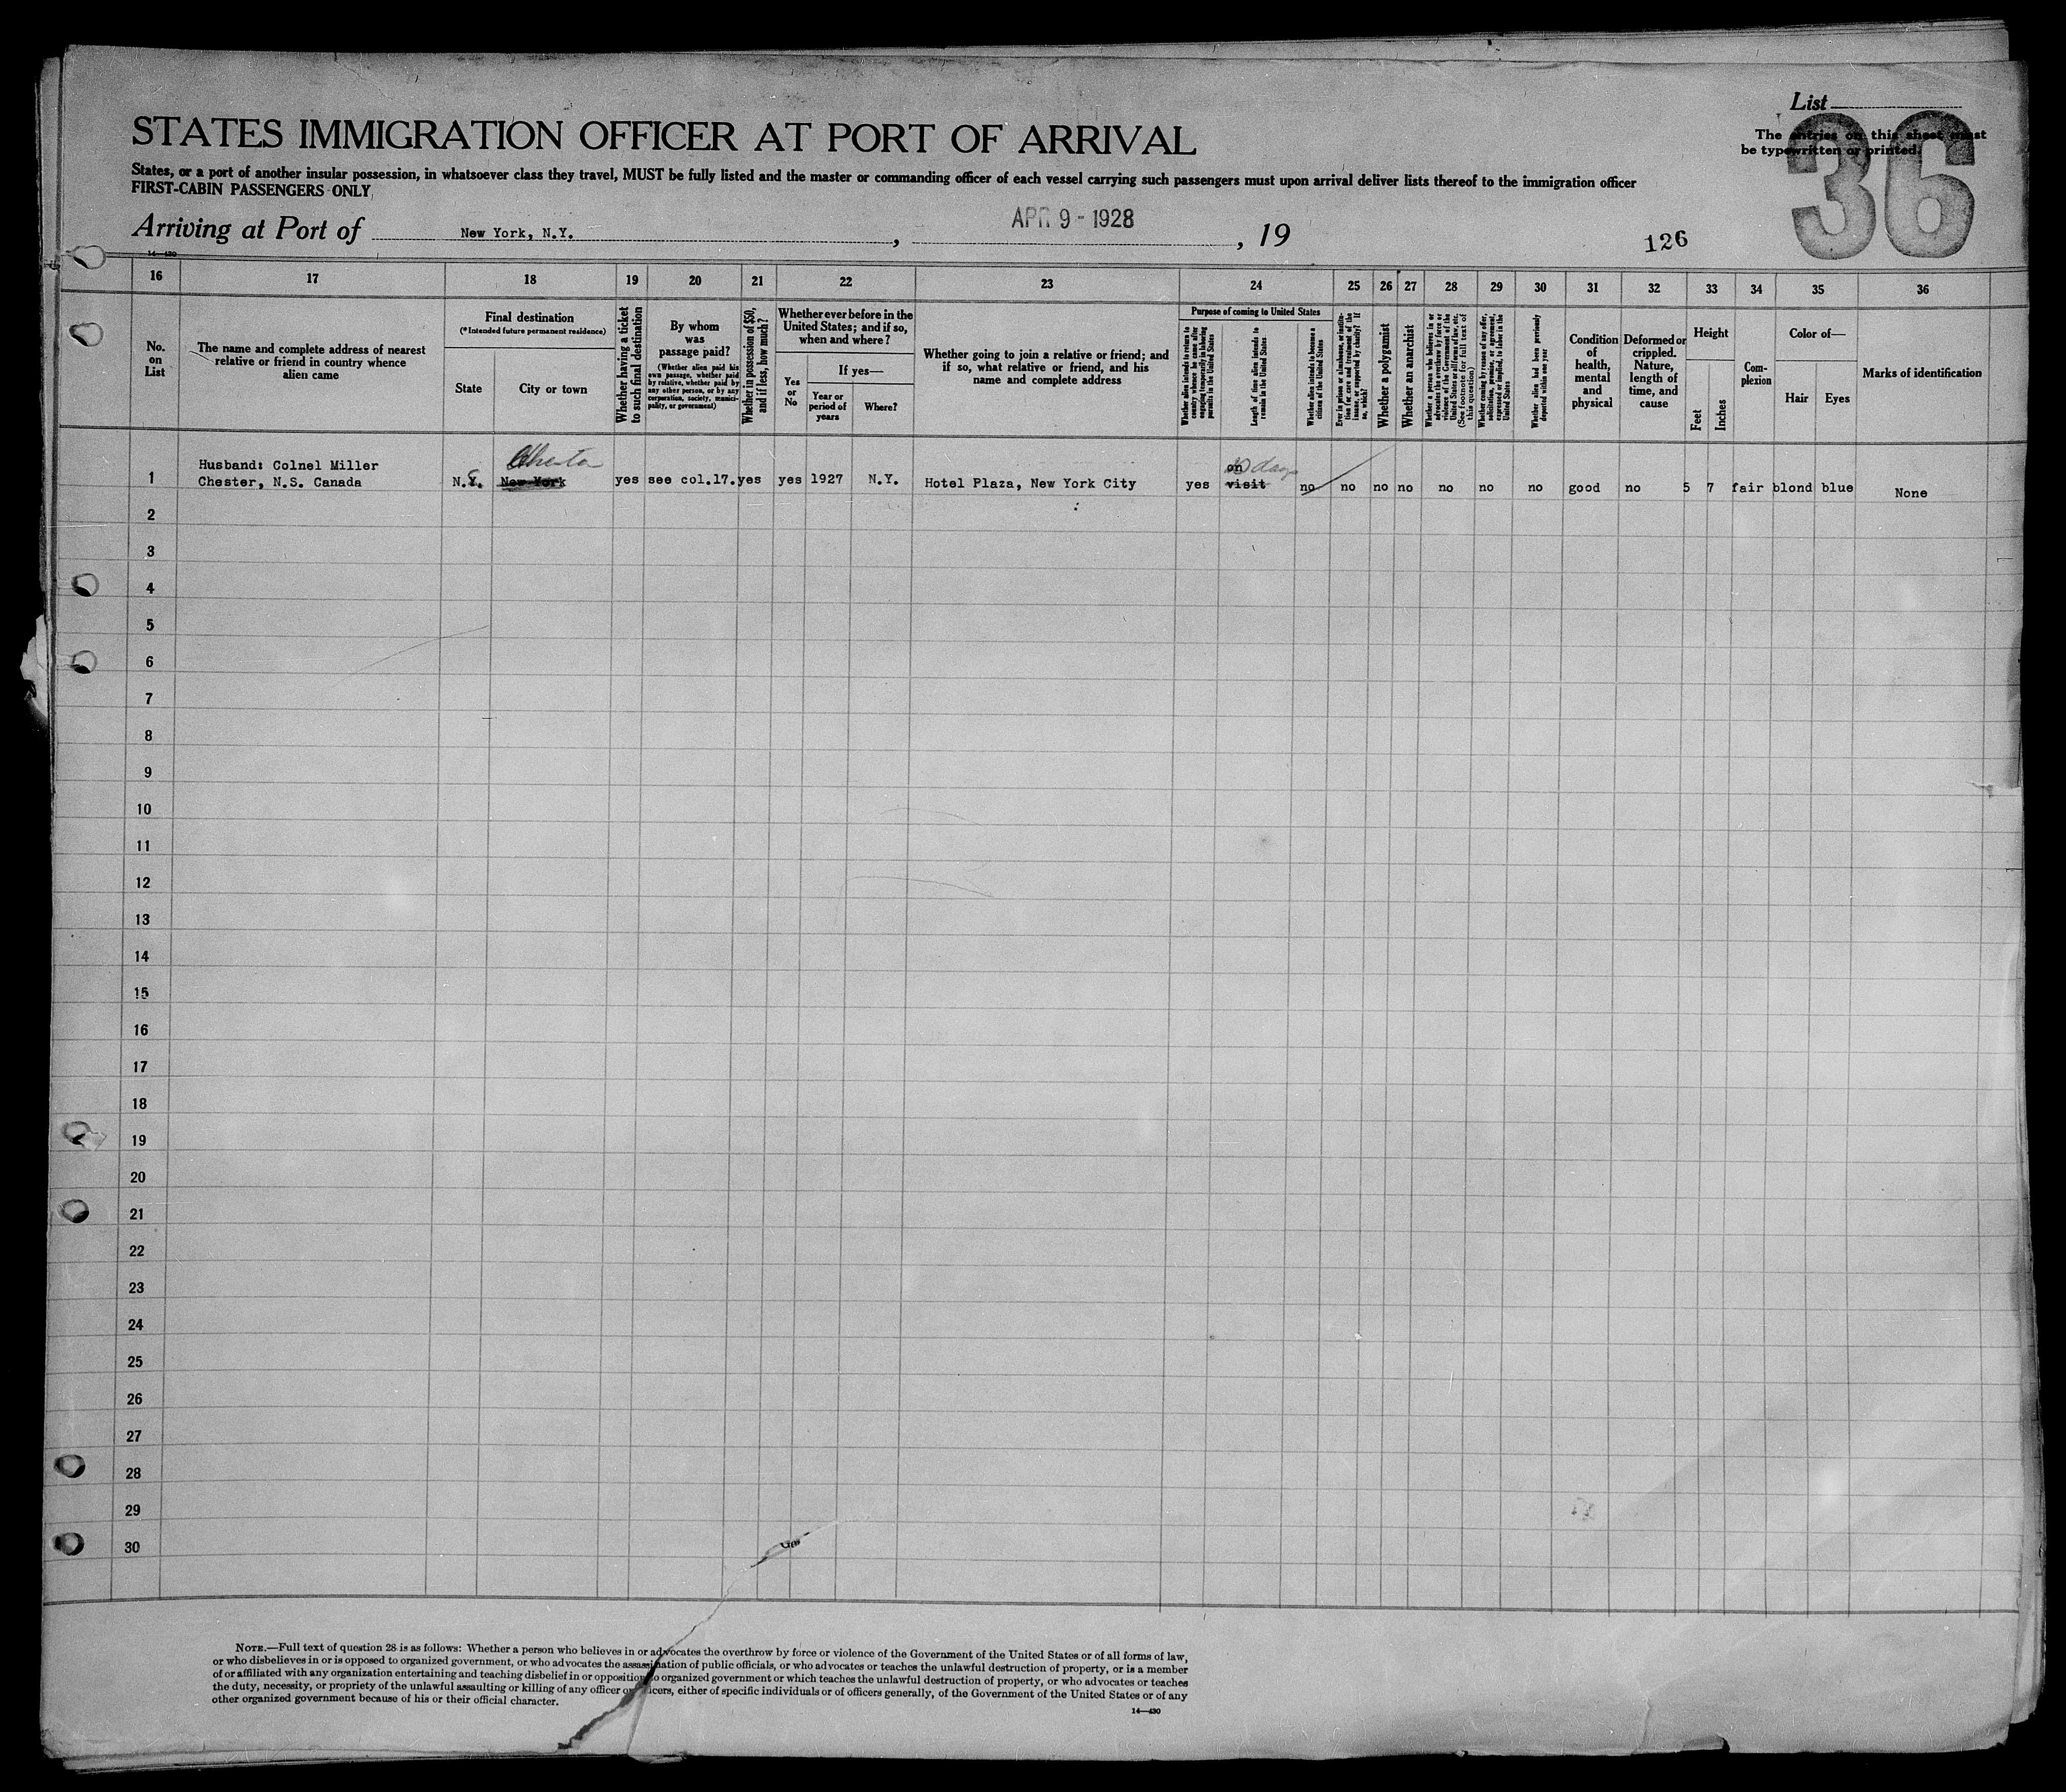 List
STATES IMMIGRATION OFFICER AT PORT OF ARRIVAL
The entries on this sheet must
be typewritten or printed.
36
States, or a port of another insular possession, in whatsoever class they travel, MUST be fully listed and the master or commanding officer of each vessel carrying such passengers must upon arrival deliver lists thereof to the immigration officer
FIRST-CABIN PASSENGERS ONLY
Arriving at Port of New York, N.Y., APR 9 - 1928, 19
126
14—430
16 17 18 19 20 21 22 23 24 25 26 27 28 29 30 31 32 33 34 35 36
No. on List
The name and complete address of nearest
relative or friend in country whence
alien came
Final destination
(*Intended future permanent residence)
State
City or town
Whether having a ticket
to such final destination
By whom
was
passage paid?
(Whether alien paid his
own passage, whether paid
by relative, whether paid by
any other person, or by any
corporation, society, munici-
pality, or government)
Whether in possession of $50,
and if less, how much?
Whether ever before in the
United States; and if so,
when and where?
Yes
or
No
If yes—
Year or
period of
years
Where?
Whether going to join a relative or friend; and
if so, what relative or friend, and his
name and complete address
Purpose of coming to United States
Whether alien intends to return to
country whence he came after
engaging temporarily in laboring
pursuits in the United States
Length of time alien intends to
remain in the United States
Whether alien intends to become a
citizen of the United States
Ever in prison or almshouse, or institu-
tion for care and treatment of the
insane, or supported by charity? If
so, which?
Whether a polygamist
Whether an anarchist
Whether a person who believes in or
advocates the overthrow by force or
violence of the Government of the
United States or all forms of law, etc.
(See footnote for full text of
this question)
Whether coming by reason of any offer,
solicitation, promise, or agreement,
expressed or implied, to labor in the
United States
Whether alien had been previously
deported within one year
Condition
of
health,
mental
and
physical
Deformed or
crippled.
Nature,
length of
time, and
cause
Height
Feet
Inches
Com-
plexion
Color of—
Hair
Eyes
Marks of identification
Husband: Colnel Miller
Chester, N.S. Canada
1 N.S. New York yes see col.17. yes yes 1927 N.Y. Hotel Plaza, New York City yes on visit days no no no no no no no good no 5 7 fair blond blue None
2
3
4
5
6
7
8
9
10
11
12
13
14
15
16
17
18
19
20
21
22
23
24
25
26
27
28
29
30
NOTE.—Full text of question 28 is as follows: Whether a person who believes in or advocates the overthrow by force or violence of the Government of the United States or of all forms of law,
or who disbelieves in or is opposed to organized government, or who advocates the assassination of public officials, or who advocates or teaches the unlawful destruction of property, or is a member
of or affiliated with any organization entertaining and teaching disbelief in or opposition to organized government or which teaches the unlawful destruction of property, or who advocates or teaches
the duty, necessity, or propriety of the unlawful assaulting or killing of any officer or officers, either of specific individuals or of officers generally, of the Government of the United States or of any
other organized government because of his or their official character.
14—430